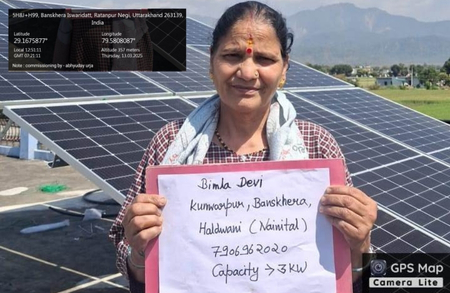 5H8J+H99, Banskhera Iswaridatt, Ratanpur Negi, Uttarakhand 263139, India
Latitude
29.1675877°
Longitude
79.5808087°
Local 12:51:11
GMT 07:21:11
Altitude 357 meters
Thursday, 13.03.2025
Note : commissioning by - abhyuday urja
Bimla Devi
Kunwarpur, Banskhera,
Haldwani (Nainital)
7906962020
Capacity → 3 KW
GPS Map
Camera Lite